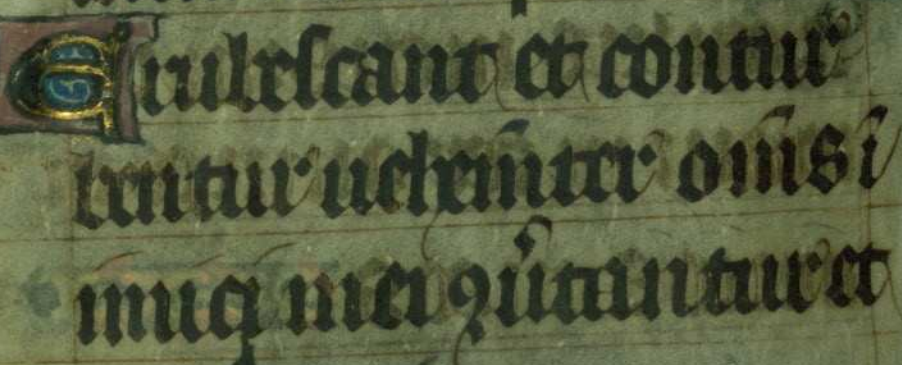 Erubescant et contur
bentur uehem̄ter om̄s i
nimicị mei ꝯũtantur et